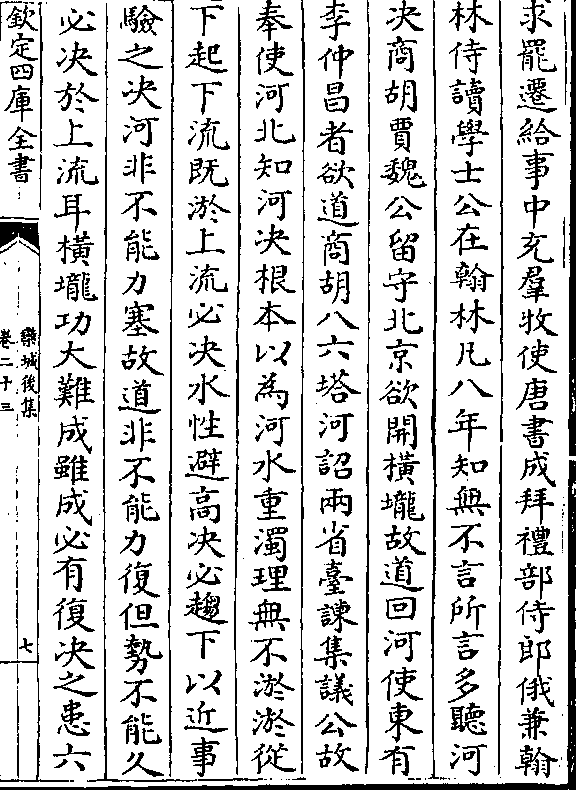 求罷遷給事中充羣牧使唐書成拜禮部侍郎俄兼翰
林侍讀學士公在翰林凡八年知無不言所言多聽河
决商胡賈魏公留守北京欲開橫壠故道回河使東有
李仲昌者欲道商胡入六塔河詔兩省臺諫集議公故
奉使河北知河决根本以為河水重濁理無不淤淤從
下起下流既淤上流必决水性避高决必趨下以近事
驗之决河非不能力塞故道非不能力復但勢不能久
必决於上流耳橫壠功大難成雖成必有復决之患六
欽定四庫全書
欒城後集
卷二十三
七